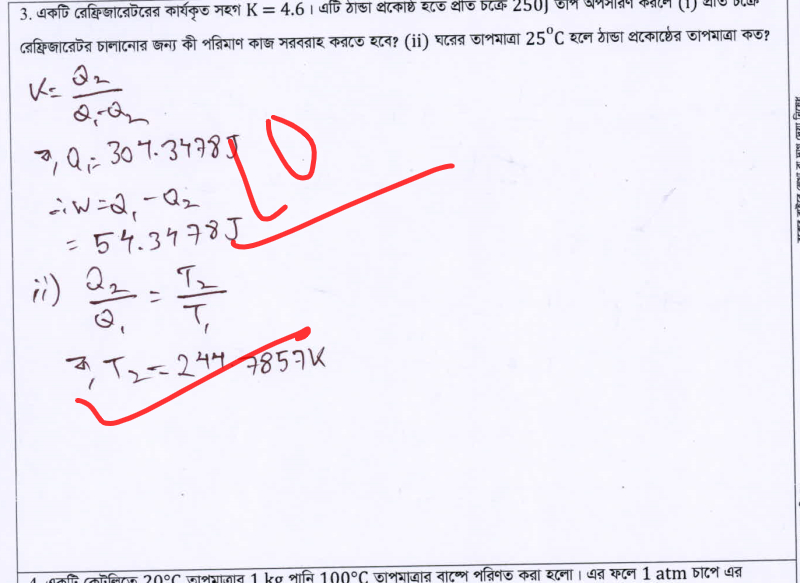 3. একটি রেফ্রিজারেটরের কার্যকৃত সহগ K = 4.6। এটি ঠান্ডা প্রকোষ্ঠ হতে প্রতি চক্রে 250J তাপ অপসারণ করলে (i) প্রতি চক্রে
রেফ্রিজারেটর চালানোর জন্য কী পরিমাণ কাজ সরবরাহ করতে হবে? (ii) ঘরের তাপমাত্রা 25°C হলে ঠান্ডা প্রকোষ্ঠের তাপমাত্রা কত?
K = Q₂ / (Q₁-Q₂)
বা, Q₁ = 304.3478J
∴ W = Q₁ - Q₂
= 54.3478J
ii) Q₂/Q₁ = T₂/T₁
বা, T₂ = 244.7857K
4. একটি কেটলিতে 20°C তাপমাত্রার 1 kg পানি 100°C তাপমাত্রার বাষ্পে পরিণত করা হলো। এর ফলে 1 atm চাপে এর